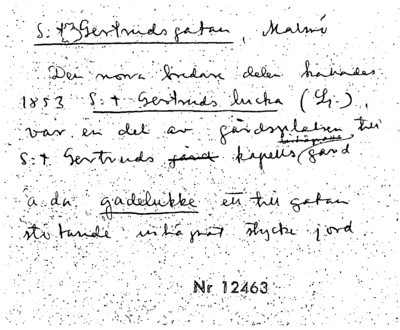 S:t Gertrudsgatan, Malmö
Den norra bredare delen kallades
1853 S:t Gertruds lucka (L.),
var en del av gårdsplatsen till
S:t Gertruds kapells gård
ä.da. gadelukke ett till gatan
stötande inhägnat stycke jord
Nr 12463